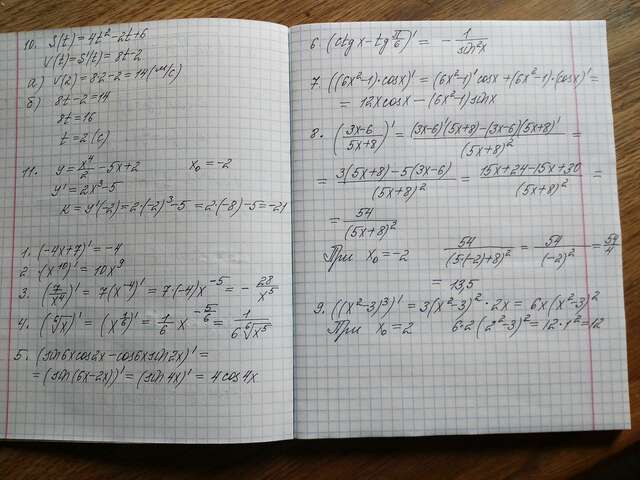 10. S(t) = 4t² - 2t + 6
V(t) = S'(t) = 8t - 2
а) V(2) = 8·2 - 2 = 14 (м/с)
б) 8t - 2 = 14
8t = 16
t = 2 (с)
11. y = x⁴/2 - 5x + 2    x₀ = -2
y' = 2x³ - 5
k = y'(-2) = 2·(-2)³ - 5 = 2·(-8) - 5 = -21
1. (-4x+7)' = -4
2. (x¹⁰)' = 10x⁹
3. (7/x⁴)' = 7(x⁻⁴)' = 7·(-4)x⁻⁵ = - 28/x⁵
4. (⁶√x)' = (x^(1/6))' = 1/6 x^(-5/6) = 1/(6 ⁶√x⁵)
5. (sin6xcos2x - cos6xsin2x)' =
= (sin(6x-2x))' = (sin4x)' = 4cos4x
6. (ctgx - tg π/6)' = - 1/sin²x
7. ((6x²-1)·cosx)' = (6x²-1)'cosx + (6x²-1)·(cosx)' =
= 12xcosx - (6x²-1)sinx
8. ((3x-6)/(5x+8))' = ((3x-6)'(5x+8) - (3x-6)(5x+8)')/(5x+8)² =
= (3(5x+8) - 5(3x-6))/(5x+8)² = (15x+24-15x+30)/(5x+8)² =
= 54/(5x+8)²
При x₀ = -2    54/(5·(-2)+8)² = 54/(-2)² = 54/4
= 13,5
9. ((x²-3)³)' = 3(x²-3)²·2x = 6x(x²-3)²
При x₀ = 2    6·2(2²-3)² = 12·1² = 12